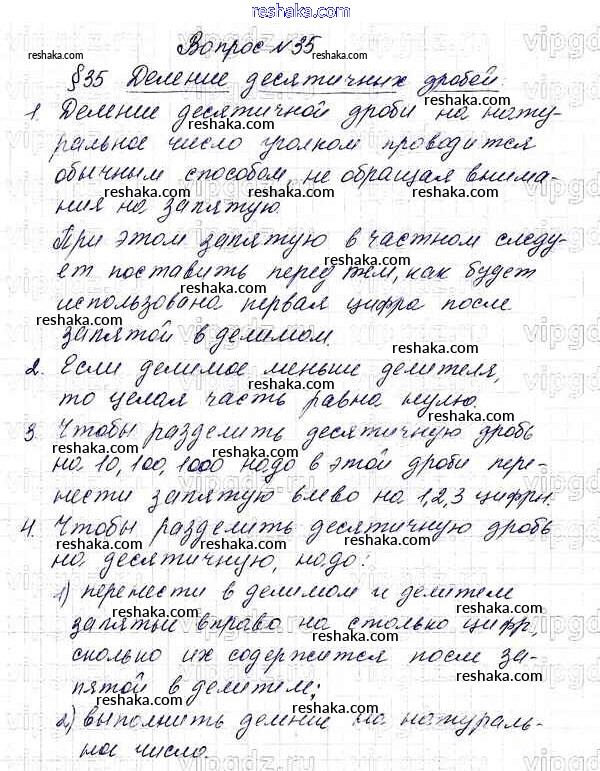 reshaka.com
Вопрос №35
§35 Деление десятичных дробей.
1. Деление десятичной дроби на нату-
ральное число уголком проводится
обычным способом, не обращая внима-
ния на запятую.
При этом запятую в частном следу-
ет поставить перед тем, как будет
использована первая цифра после
запятой в делимом.
2. Если делимое меньше делителя,
то целая часть равна нулю.
3. Чтобы разделить десятичную дробь
на 10, 100, 1000 надо в этой дроби пере-
нести запятую влево на 1,2,3 цифры.
4. Чтобы разделить десятичную дробь
на десятичную, надо:
1) перенести в делимом и делителем
запятые вправо на столько цифр,
сколько их содержится после за-
пятой в делителем;
2) выполнить деление на натураль-
ное число.
reshaka.com